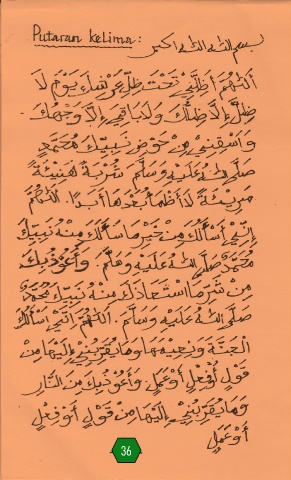 Putaran Kelima: بسم الله الله اكبر
اَللّٰهُمَّ أَظِلَّنِيْ تَحْتَ ظِلِّ عَرْشِكَ يَوْمَ لَا
ظِلَّ إِلَّا ظِلُّكَ وَلَا بَاقِيَ إِلَّا وَجْهُكَ
وَاسْقِنِيْ مِنْ حَوْضِ نَبِيِّكَ مُحَمَّدٍ
صَلَّى اللهُ عَلَيْهِ وَسَلَّمَ شُرْبَةً هَنِيْئَةً
مَرِيْئَةً لَا أَظْمَأُ بَعْدَهَا أَبَدًا. اَللّٰهُمَّ
إِنِّيْ أَسْأَلُكَ مِنْ خَيْرِ مَا سَأَلَكَ مِنْهُ نَبِيُّكَ
مُحَمَّدٌ صَلَّى اللهُ عَلَيْهِ وَسَلَّمَ. وَأَعُوْذُ بِكَ
مِنْ شَرِّ مَا اسْتَعَاذَكَ مِنْهُ نَبِيُّكَ مُحَمَّدٌ
صَلَّى اللهُ عَلَيْهِ وَسَلَّمَ. اَللّٰهُمَّ إِنِّيْ أَسْأَلُكَ
الْجَنَّةَ وَنَعِيْمَهَا وَمَا يُقَرِّبُنِيْ إِلَيْهَا مِنْ
قَوْلٍ أَوْ فِعْلٍ أَوْ عَمَلٍ وَأَعُوْذُ بِكَ مِنَ النَّارِ
وَمَا يُقَرِّبُنِيْ إِلَيْهَا مِنْ قَوْلٍ أَوْ فِعْلٍ
أَوْ عَمَلٍ
36